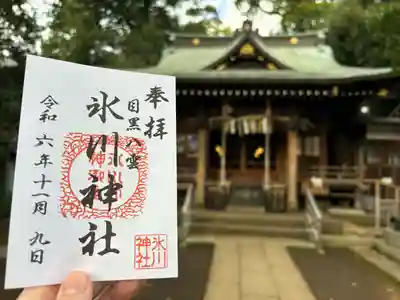 奉拝
目黒八雲
氷川神社
令和六年十一月九日
氷川
神社